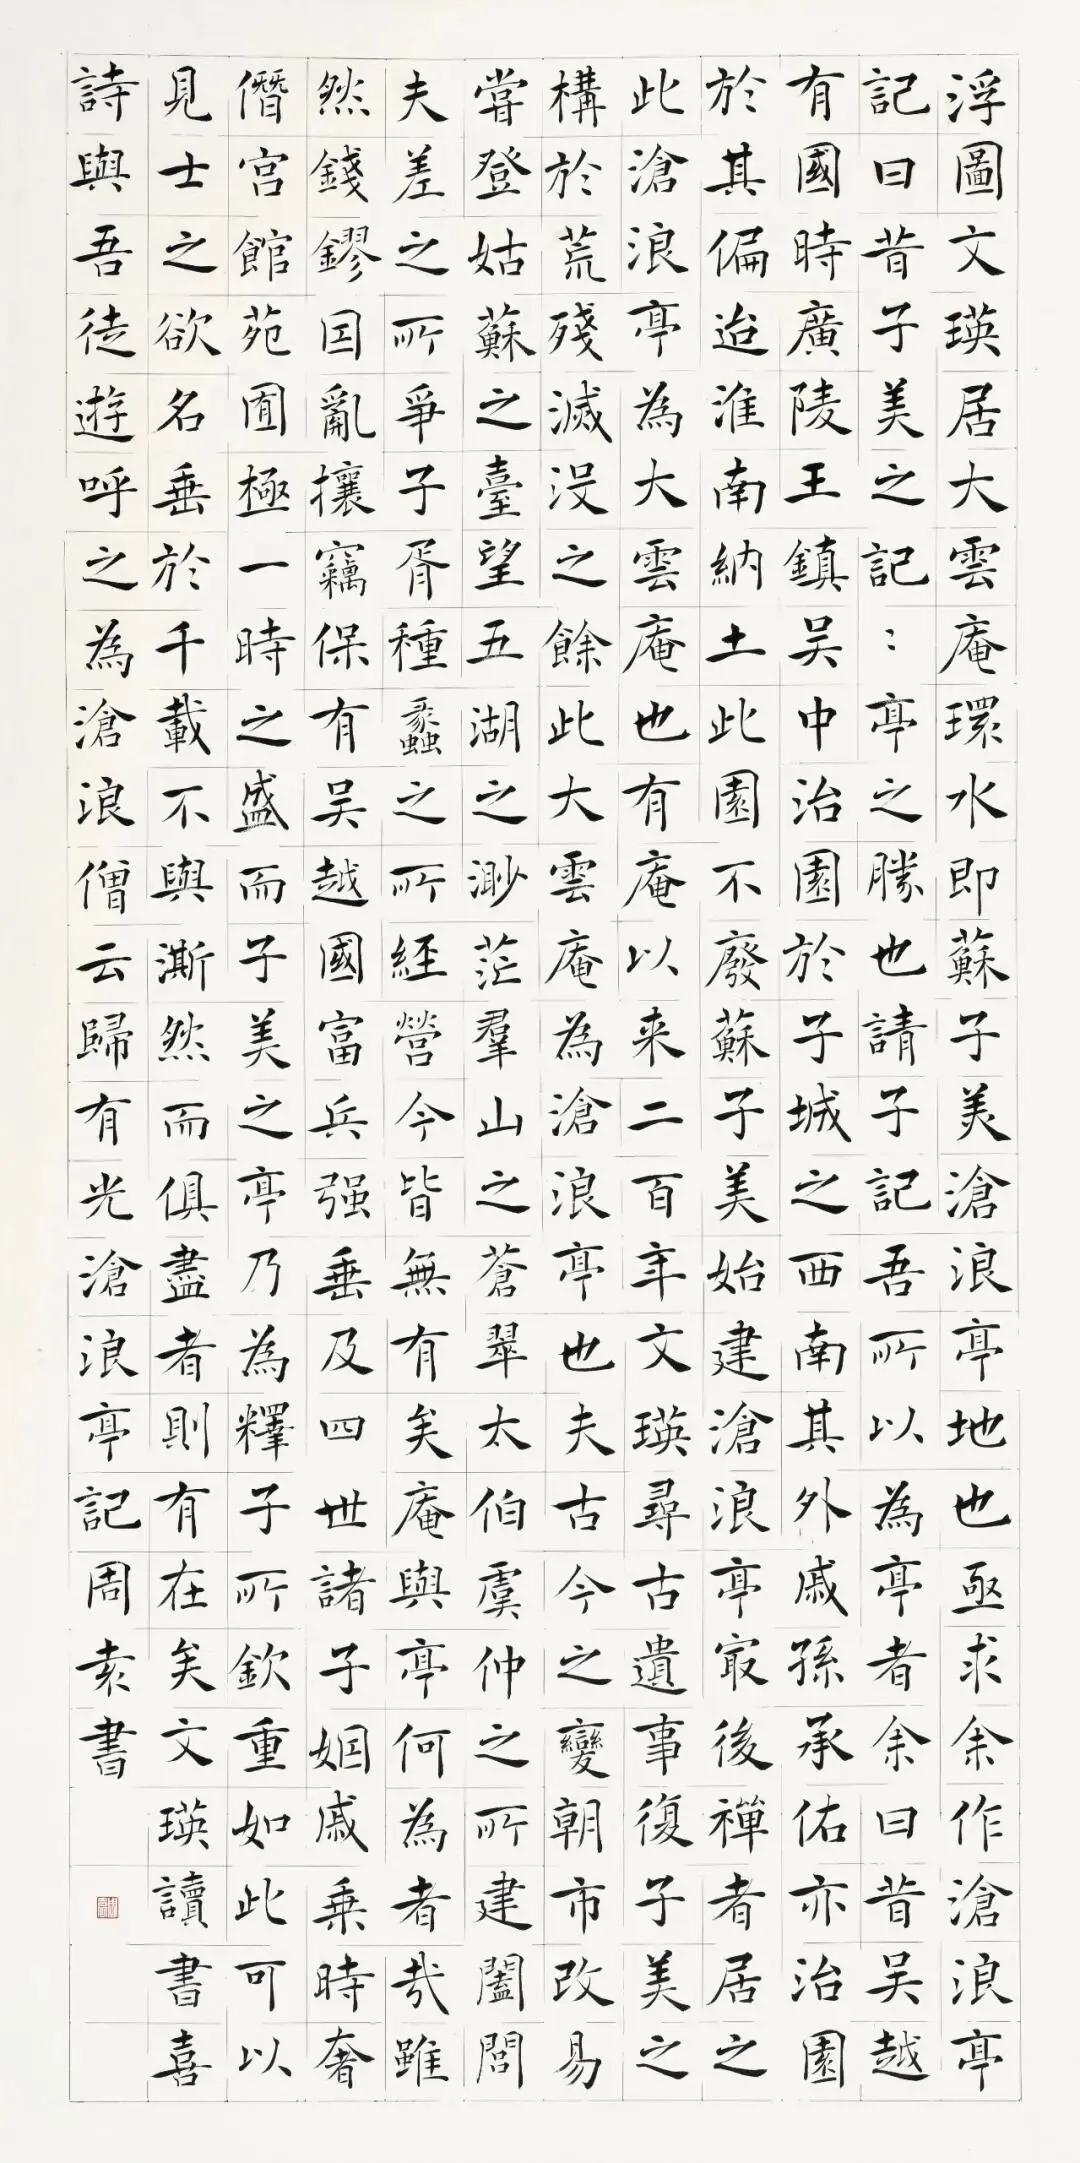 浮圖文瑛居大雲庵環水即蘇子美滄浪亭地也亟求余作滄浪亭
記曰昔子美之記〻亭之勝也請子記吾所以為亭者余曰昔吴越
有國時廣陵王鎮吴中治園於子城之西南其外戚孫承佑亦治園
於其偏迨淮南納土此園不廢蘇子美始建滄浪亭冣後禪者居之
此滄浪亭為大雲庵也有庵以来二百年文瑛尋古遺事復子美之
構於荒殘滅没之餘此大雲庵為滄浪亭也夫古今之變朝市改易
嘗登姑蘇之臺望五湖之渺茫羣山之蒼翠太伯虞仲之所建闔閭
夫差之所爭子胥種蠡之所經營今皆無有矣庵與亭何為者哉雖
然錢鏐囙亂攘竊保有吴越國富兵强垂及四世諸子姻戚乗時奢
僭宫館苑囿極一時之盛而子美之亭乃為釋子所欽重如此可以
見士之欲名垂於千載不與澌然而俱盡者則有在矣文瑛讀書喜
詩與吾徒遊呼之為滄浪僧云歸有光滄浪亭記周袁書